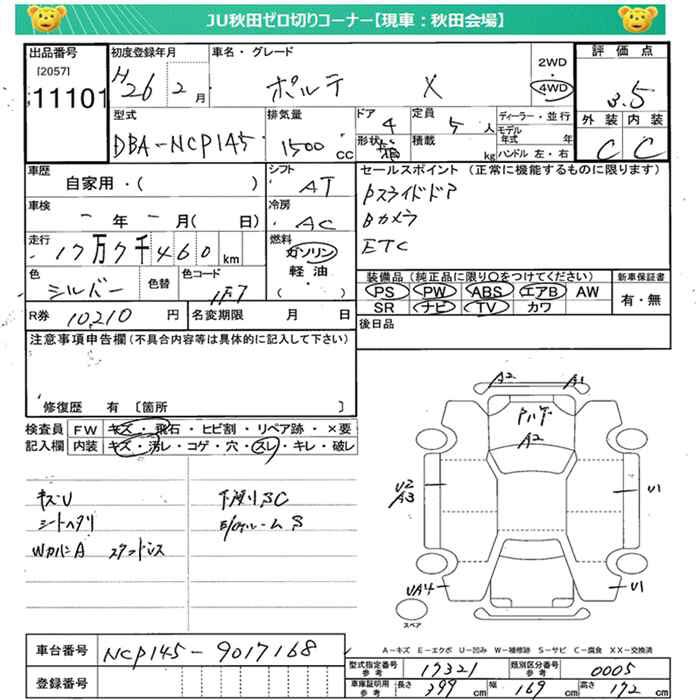 JU秋田ゼロ切りコーナー【現車:秋田会場】
出品番号 初度登録年月 車名・グレード 評価点
[2057]
11101 H26 2月 ポルテ X 2WD 4WD 3.5
型式 排気量 ドア 定員 ディーラー・並行 外装 内装
DBA-NCP145 1500cc 4 5人 モデル年式 年 C C
形状 箱 積載 kg ハンドル 左・右
車歴 シフト セールスポイント(正常に機能するものに限ります)
自家用・( ) AT Pスライドドア
車検 冷房 Bカメラ
-年-月( 日) AC ETC
走行 燃料
17万7千460km ガソリン
軽油
・( )
色 色替 色コード 装備品(純正品に限り○をつけてください) 新車保証書
シルバー 1F7 PS PW ABS エアB AW 有・無
SR ナビ TV カワ
R券 10,210円 名変期限 月 日 後日品
注意事項申告欄(不具合内容等は具体的に記入して下さい)
修復歴 有 〔箇所 〕
検査員 FW キズ・飛石・ヒビ割・リペア跡・×要
記入欄 内装 キズ・汚レ・コゲ・穴・スレ・キレ・破レ
キズU 下廻りSC
シートヘタリ
A2 A1
A2
U2
A3
U1
UA4
U1
スペア
A-キズ E-エクボ U-凹み W-補修跡 S-サビ C-腐食 XX-交換済
車台番号 NCP145-9017168
登録番号
型式指定番号 参考 17321 類別区分番号 参考 0005
車庫証明用 参考 長さ 399cm 幅 169cm 高さ 172cm